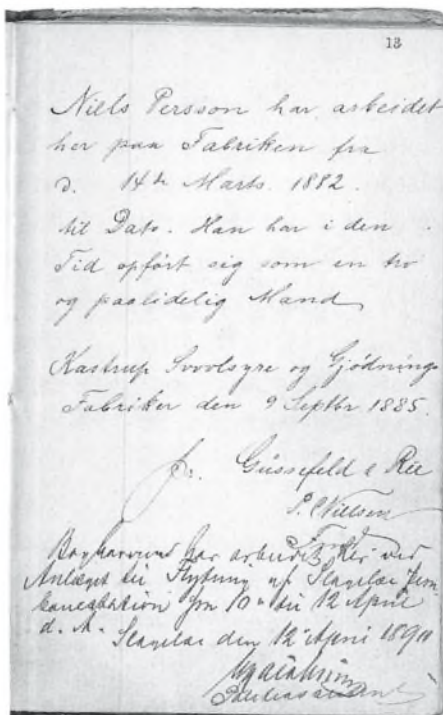 13
Niels Persson har arbeidet
her paa Fabriken fra
d. 14de Marts. 1882.
til Dato. Han har i den
Tid opført sig som en tro
og paalidelig Mand
Kastrup Svovlsyre og Gjödnings
Fabriker den 9 Septbr 1885.
pr. Güssefeld & Ree
P. C. Nielsen
har arbeidet her ved
Anlæget til Flytning af Slagelse Jern
banestation fra 10de til 12 April
d. A.
Slagelse den 12 April 1890